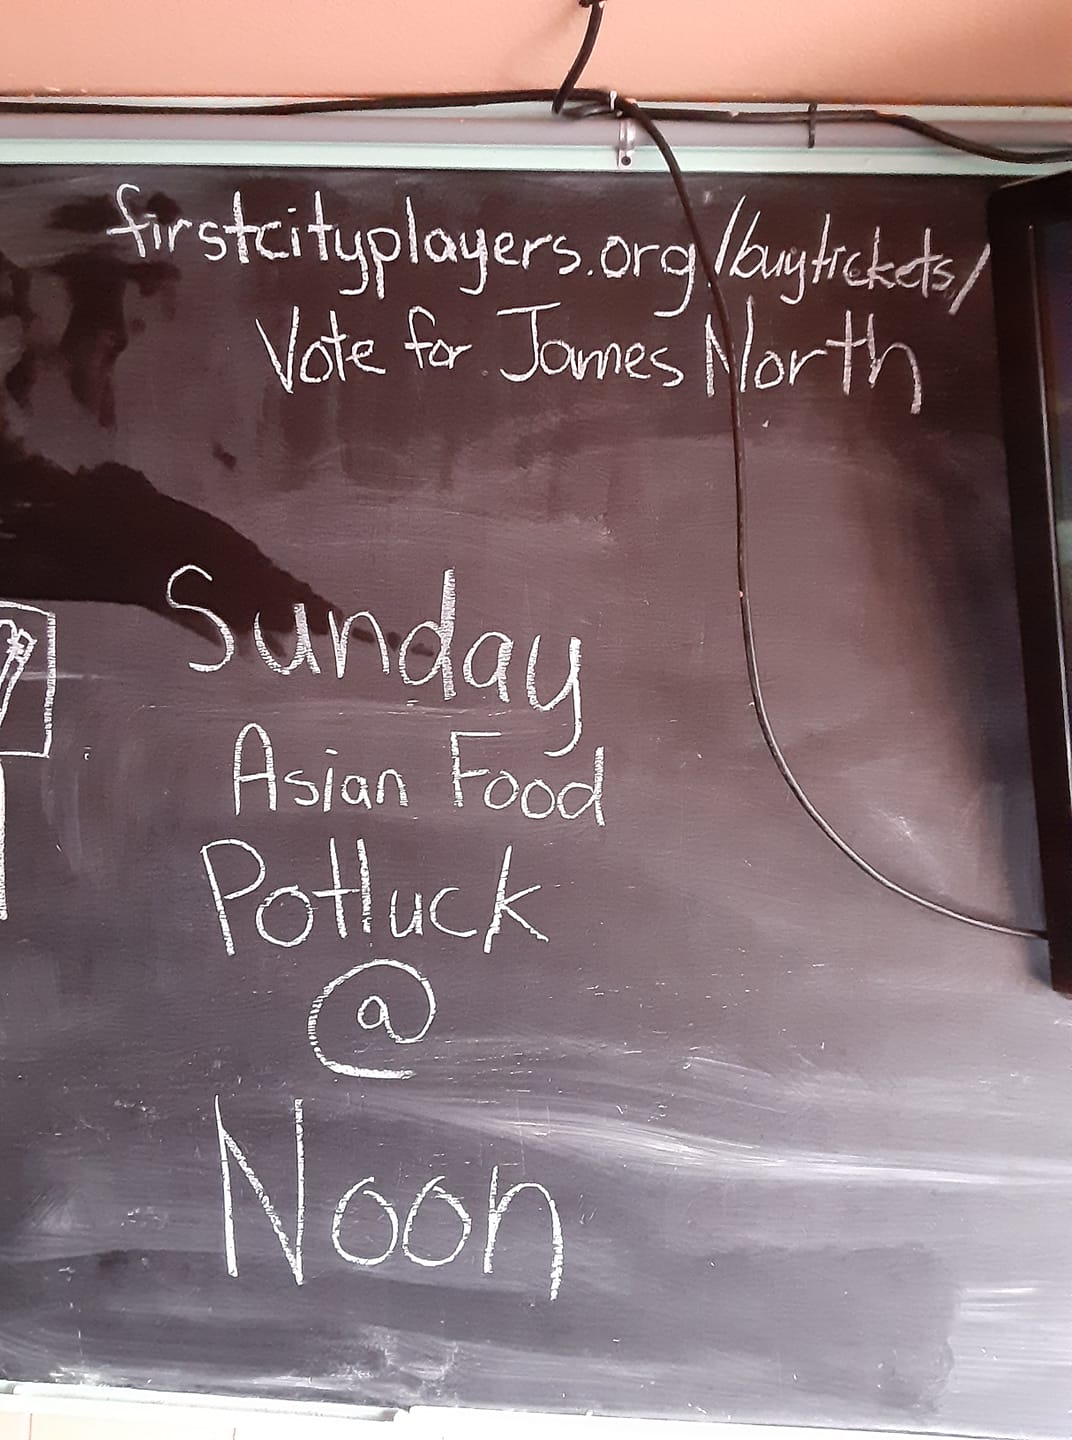 firstcityplayers.org/buytickets/
Vote for James North
Sunday
Asian Food
Potluck
@
Noon